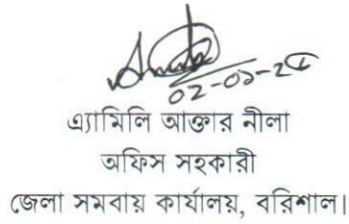 ০২-০১-২৫
এ্যামিলি আক্তার নীলা
অফিস সহকারী
জেলা সমবায় কার্যালয়, বরিশাল।